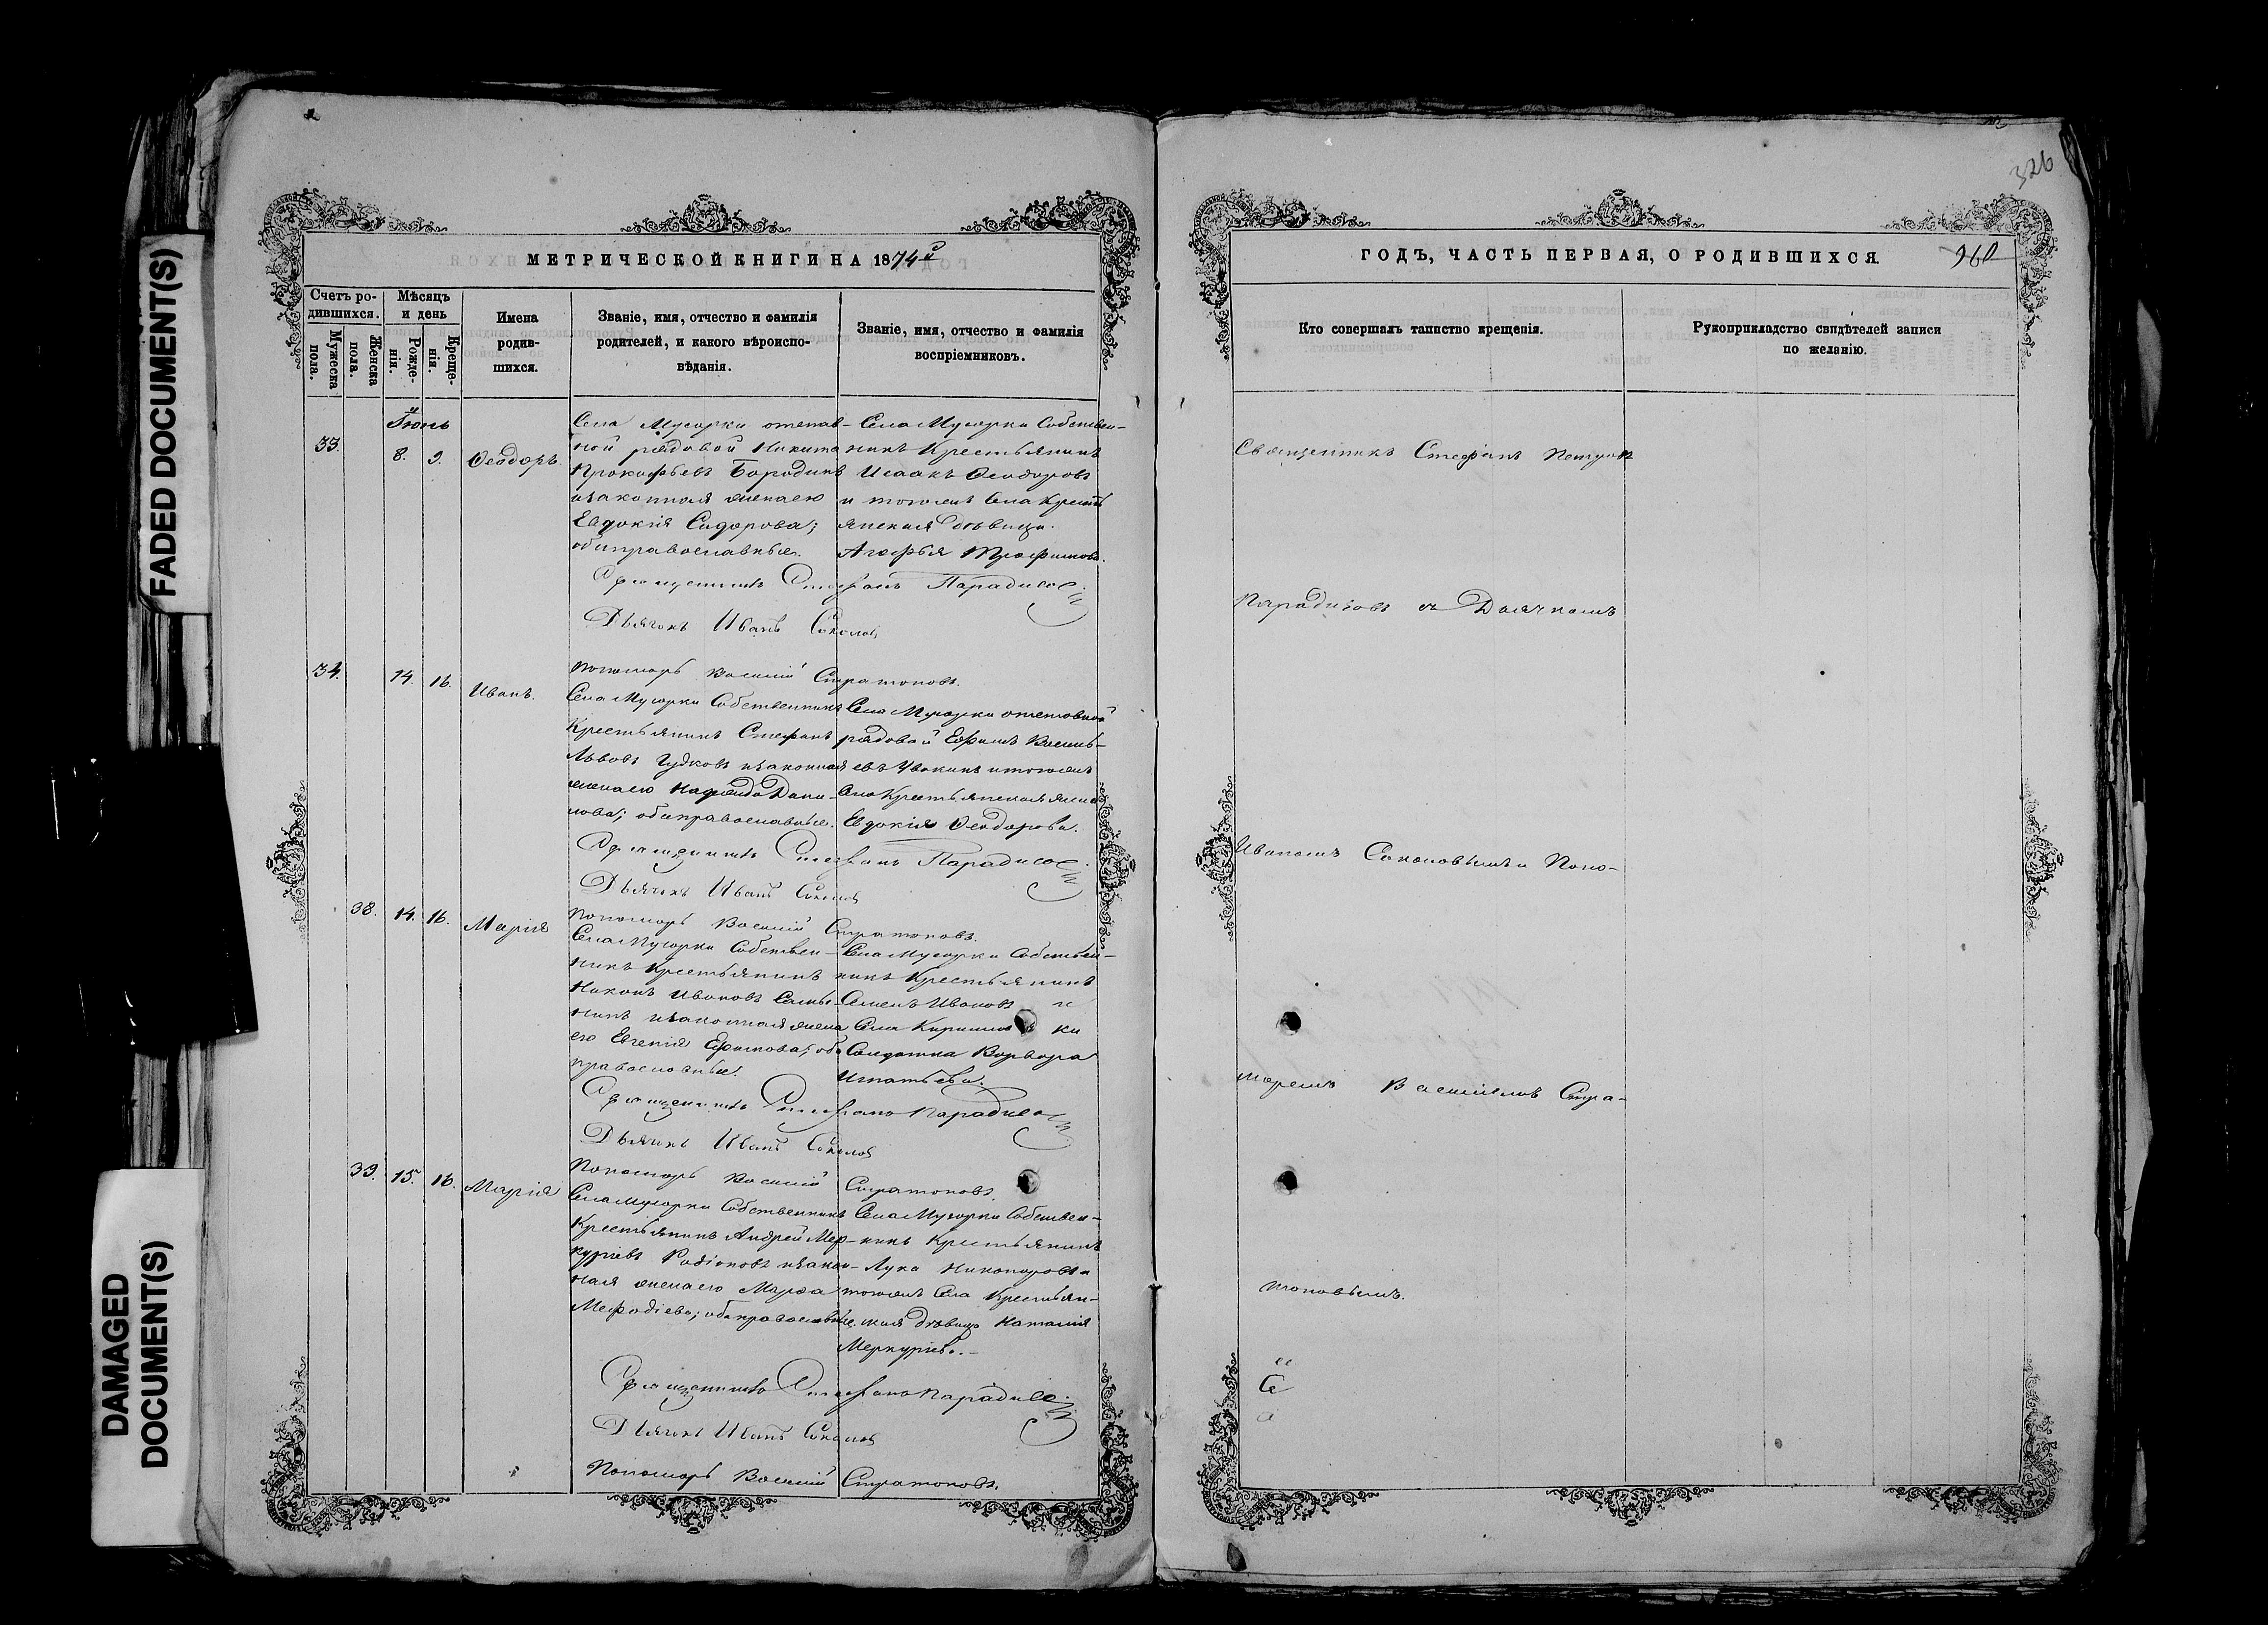 FADED DOCUMENT(S)
DAMAGED
DOCUMENT(S)
МЕТРИЧЕСКОЙ КНИГИ НА 1874й
Счетъ ро-
дившихся.
Мужеска
пола.
Женска
пола.
Мѣсяцъ
и день
Рожде-
нія.
Креще-
нія.
Имена
родив-
шихся.
Званіе, имя, отчество и фамилія
родителей, и какого вѣроиспо-
вѣданія.
Званіе, имя, отчество и фамилія
воспріемниковъ.
Іюнь
33. 8. 9. Ѳеодоръ.
Села Мусорки отстав-
ной рядовой Никита
Прокофьевъ Бородинъ
и законная жена его
Евдокія Сидорова;
оба православные.
Села Мусорки Собствен-
никъ Крестьянинъ
Исаакъ Ѳеодоровъ
и того же Села Кресть
янская дѣвица
Агафья Трофимова.
Священникъ Стефанъ Парадизовъ
Дьячокъ Иванъ Соколовъ
Пономарь Василій Стратоновъ.
34. 14. 16. Иванъ.
Села Мусорки Собственникъ
Крестьянинъ Стефанъ
Львовъ Гудковъ и законная
жена его Надежда Дани-
лова; оба православные.
Села Мусорки отставной
рядовой Ефимъ Василь-
евъ Увакинъ и того же
Села Крестьянская жена
Евдокія Ѳеодорова.
Священникъ Стефанъ Парадизовъ
Дьячокъ Иванъ Соколовъ
Пономарь Василій Стратоновъ.
38. 14. 16. Марія
Села Мусорки Собствен-
никъ Крестьянинъ
Никонъ Ивановъ
и законная жена
его Евгенія Ефимова; оба
православные.
Села Мусорки Собствен-
никъ Крестьянинъ
Семенъ Ивановъ и
Села
Солдатка Варвара
Игнатьева.
Священникъ Стефанъ Парадизовъ
Дьячокъ Иванъ Соколовъ
Пономарь Василій Стратоновъ.
39. 15. 16. Марія
Села Мусорки Собственникъ
Крестьянинъ Андрей Мер-
куріевъ Родіоновъ и закон-
ная жена его Марѳа
Меѳодіева; оба православные.
Села Мусорки Собствен-
никъ Крестьянинъ
Лука Никаноровъ и
того же Села Крестьян-
ская дѣвица Наталія
Меркуріева.
Священникъ Стефанъ Парадизовъ
Дьячокъ Иванъ Соколовъ
Пономарь Василій Стратоновъ.
326
ГОДЪ, ЧАСТЬ ПЕРВАЯ, О РОДИВШИХСЯ.
960
Кто совершалъ таинство крещенія.
Рукоприкладство свидѣтелей записи
по желанію.
Священникъ Стефанъ Петровъ
Парадизовъ съ Дьячкомъ
Иваномъ Соколовымъ и Поно-
маремъ Василіемъ Стра-
тоновымъ.